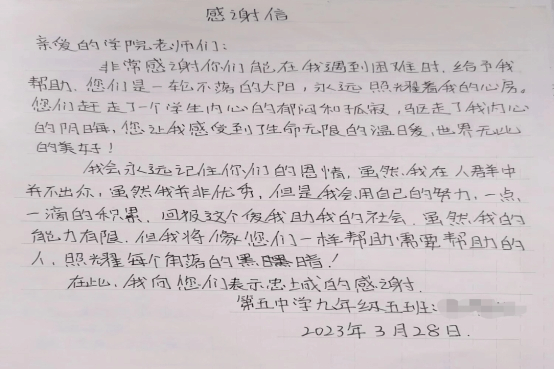 感谢信
亲爱的学院老师们:
非常感谢你们能在我遇到困难时,给予我
帮助,您们是一轮不落的太阳,永远照耀着我的心房。
您们赶走了一个学生内心的郁闷和孤寂,驱走了我内心
的阴晦,您让我感受到了生命无限的温暖,世界无比
的美好!
我会永远记住你们的恩情,虽然我在人群中
并不出众,虽然我并非优秀,但是我会用自己的努力,一点
一滴的积累,回报这个援我助我的社会,虽然我的
能力有限,但我将像您们一样帮助需要帮助的
人,照耀每个角落的黑暗!
在此,我向您们表示忠诚的感谢.
第五中学九年级五班:
2023年3月28日.